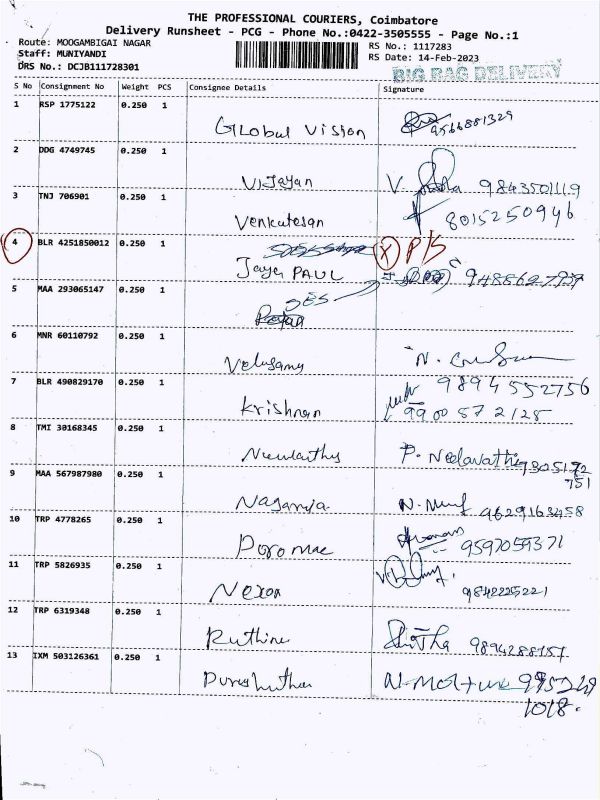 THE PROFESSIONAL COURIERS, Coimbatore
Delivery Runsheet - PCG - Phone No.:0422-3505555 - Page No.:1
Route: MOOGAMBIGAI NAGAR
RS No.: 1117283
Staff: MUNIYANDI
RS Date: 14-Feb-2023
DRS No.: DCJB111728301
BIG BAG DELIVERY
S No Consignment No Weight PCS Consignee Details Signature
1 RSP 1775122 0.250 1 Global Vision 9566881329
2 DDG 4749745 0.250 1 Vijayan V. 9843501119
3 TNJ 706901 0.250 1 Venkatesan 8015250946
4 BLR 4251850012 0.250 1 Jaya PAUL X P/S
5 MAA 293065147 0.250 1
6 MNR 60110792 0.250 1 Velusamy N.
9894552756
7 BLR 490829170 0.250 1 Krishnan 9900572125
8 TMI 30168345 0.250 1 P. Neelavathi 7305172
751
9 MAA 567987980 0.250 1 N. 9629163458
10 TRP 4778265 0.250 1 9597059371
11 TRP 5826935 0.250 1 Nexon 9842225221
12 TRP 6319348 0.250 1 9894288157
13 IXM 503126361 0.250 1
1018.